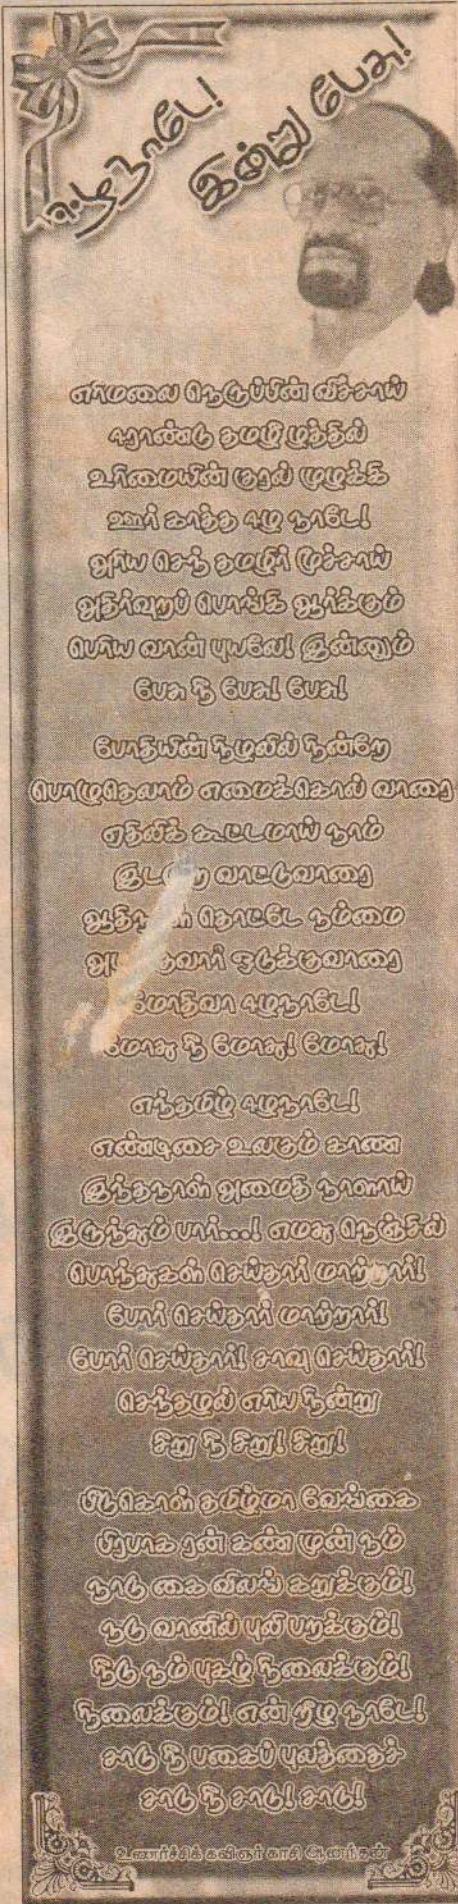 ஈழநாடே!
இன்று பேசு!
எரிமலை நெருப்பின் வீச்சாய்
ஈராண்டு தமிழீ ழத்தில்
உரிமையின் குரல் முழக்கி
ஊர் காத்த ஈழ நாடே!
அரிய செந் தமிழர் மூச்சாய்
அதிர்வுறப் பொங்கி ஆர்க்கும்
பெரிய வான் புயலே! இன்னும்
பேசு நீ பேசு! பேசு!
போதியின் நிழலில் நின்றே
பொழுதெலாம் எமைக்கொல் வாரை
ஏதிலிக் கூட்டமாய் நாம்
வாட்டுவாரை
தொட்டே நம்மை
ஒடுக்குவாரை
மோதிவா ஈழநாடே!
மோது நீ மோது! மோது!
எந்தமிழ் ஈழநாடே!
எண்டிசை உலகும் காண
இந்தநாள் அமைதி நாளாய்
இருந்தும் பார்...! எமது நெஞ்சில்
பொந்துகள் செய்தார் மாற்றார்!
போர் செய்தார் மாற்றார்!
போர் செய்தார்! சாவு செய்தார்!
செந்தழல் எரிய நின்று
சீறு நீ சீறு! சீறு!
பீடுகொள் தமிழ்மா வேங்கை
பிரபாக ரன் கண் முன் நம்
நாடு கை விலங் கறுக்கும்!
நடு வானில் புலி பறக்கும்!
நீடு நம் புகழ் நிலைக்கும்!
நிலைக்கும்! என் றீழ நாடே!
சாடு நீ பகைப் புலத்தைச்
சாடு நீ சாடு! சாடு!
உணர்ச்சிக் கவிஞர் காசி ஆனந்தன்